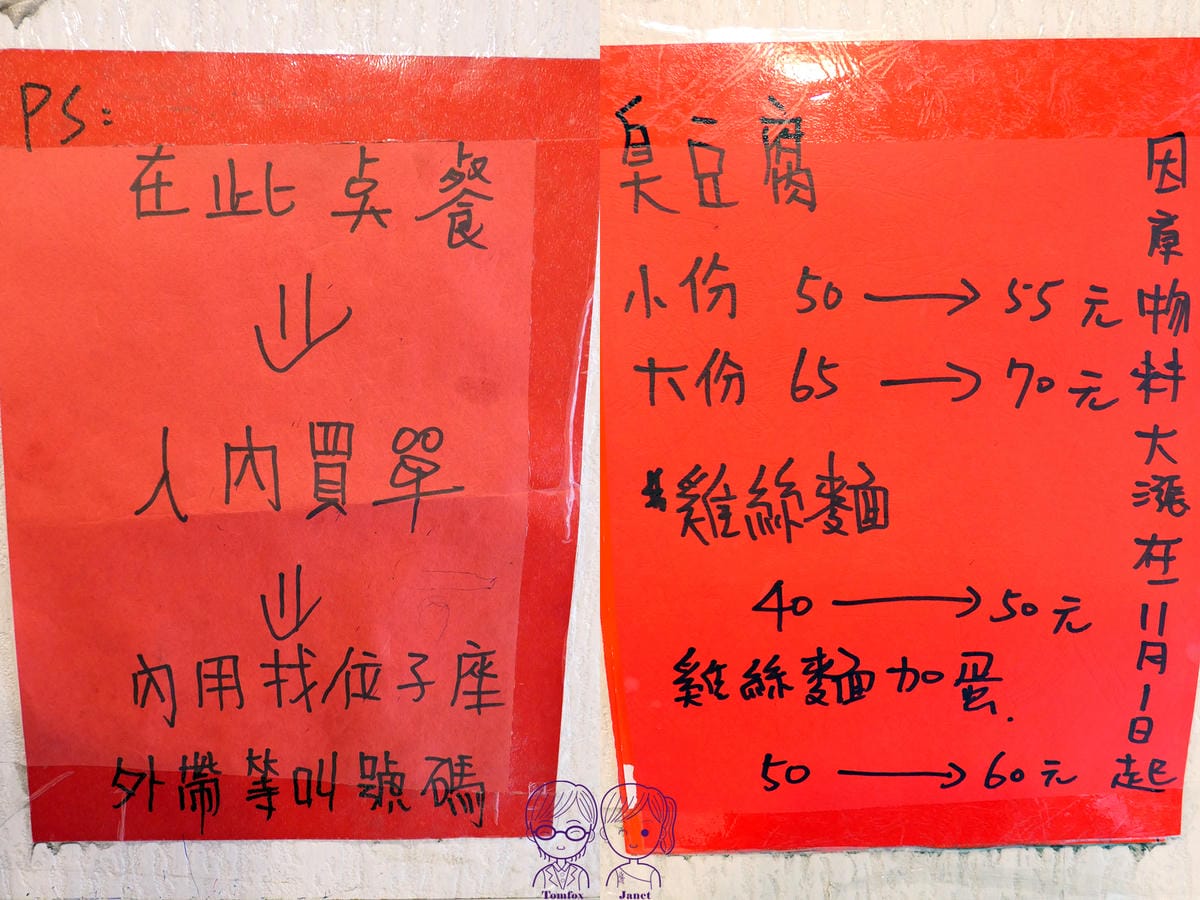 PS:
在此点餐
人內買單
內用找位子座
外帶等叫號碼
臭豆腐
小份 50 → 55元
大份 65 → 70元
*雞絲麵
40 → 50元
雞絲麵加蛋.
50 → 60元
因原物料大漲在11月1日起
Tomfox
Janet